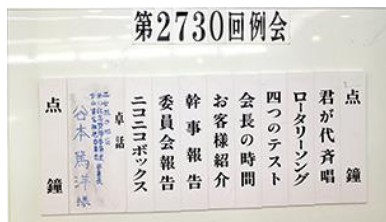 第2730回例会
点鐘
君が代斉唱
ロータリーソング
四つのテスト
会長の時間
お客様紹介
幹事報告
委員会報告
ニコニコボックス
卓話
谷本篤洋様
点鐘